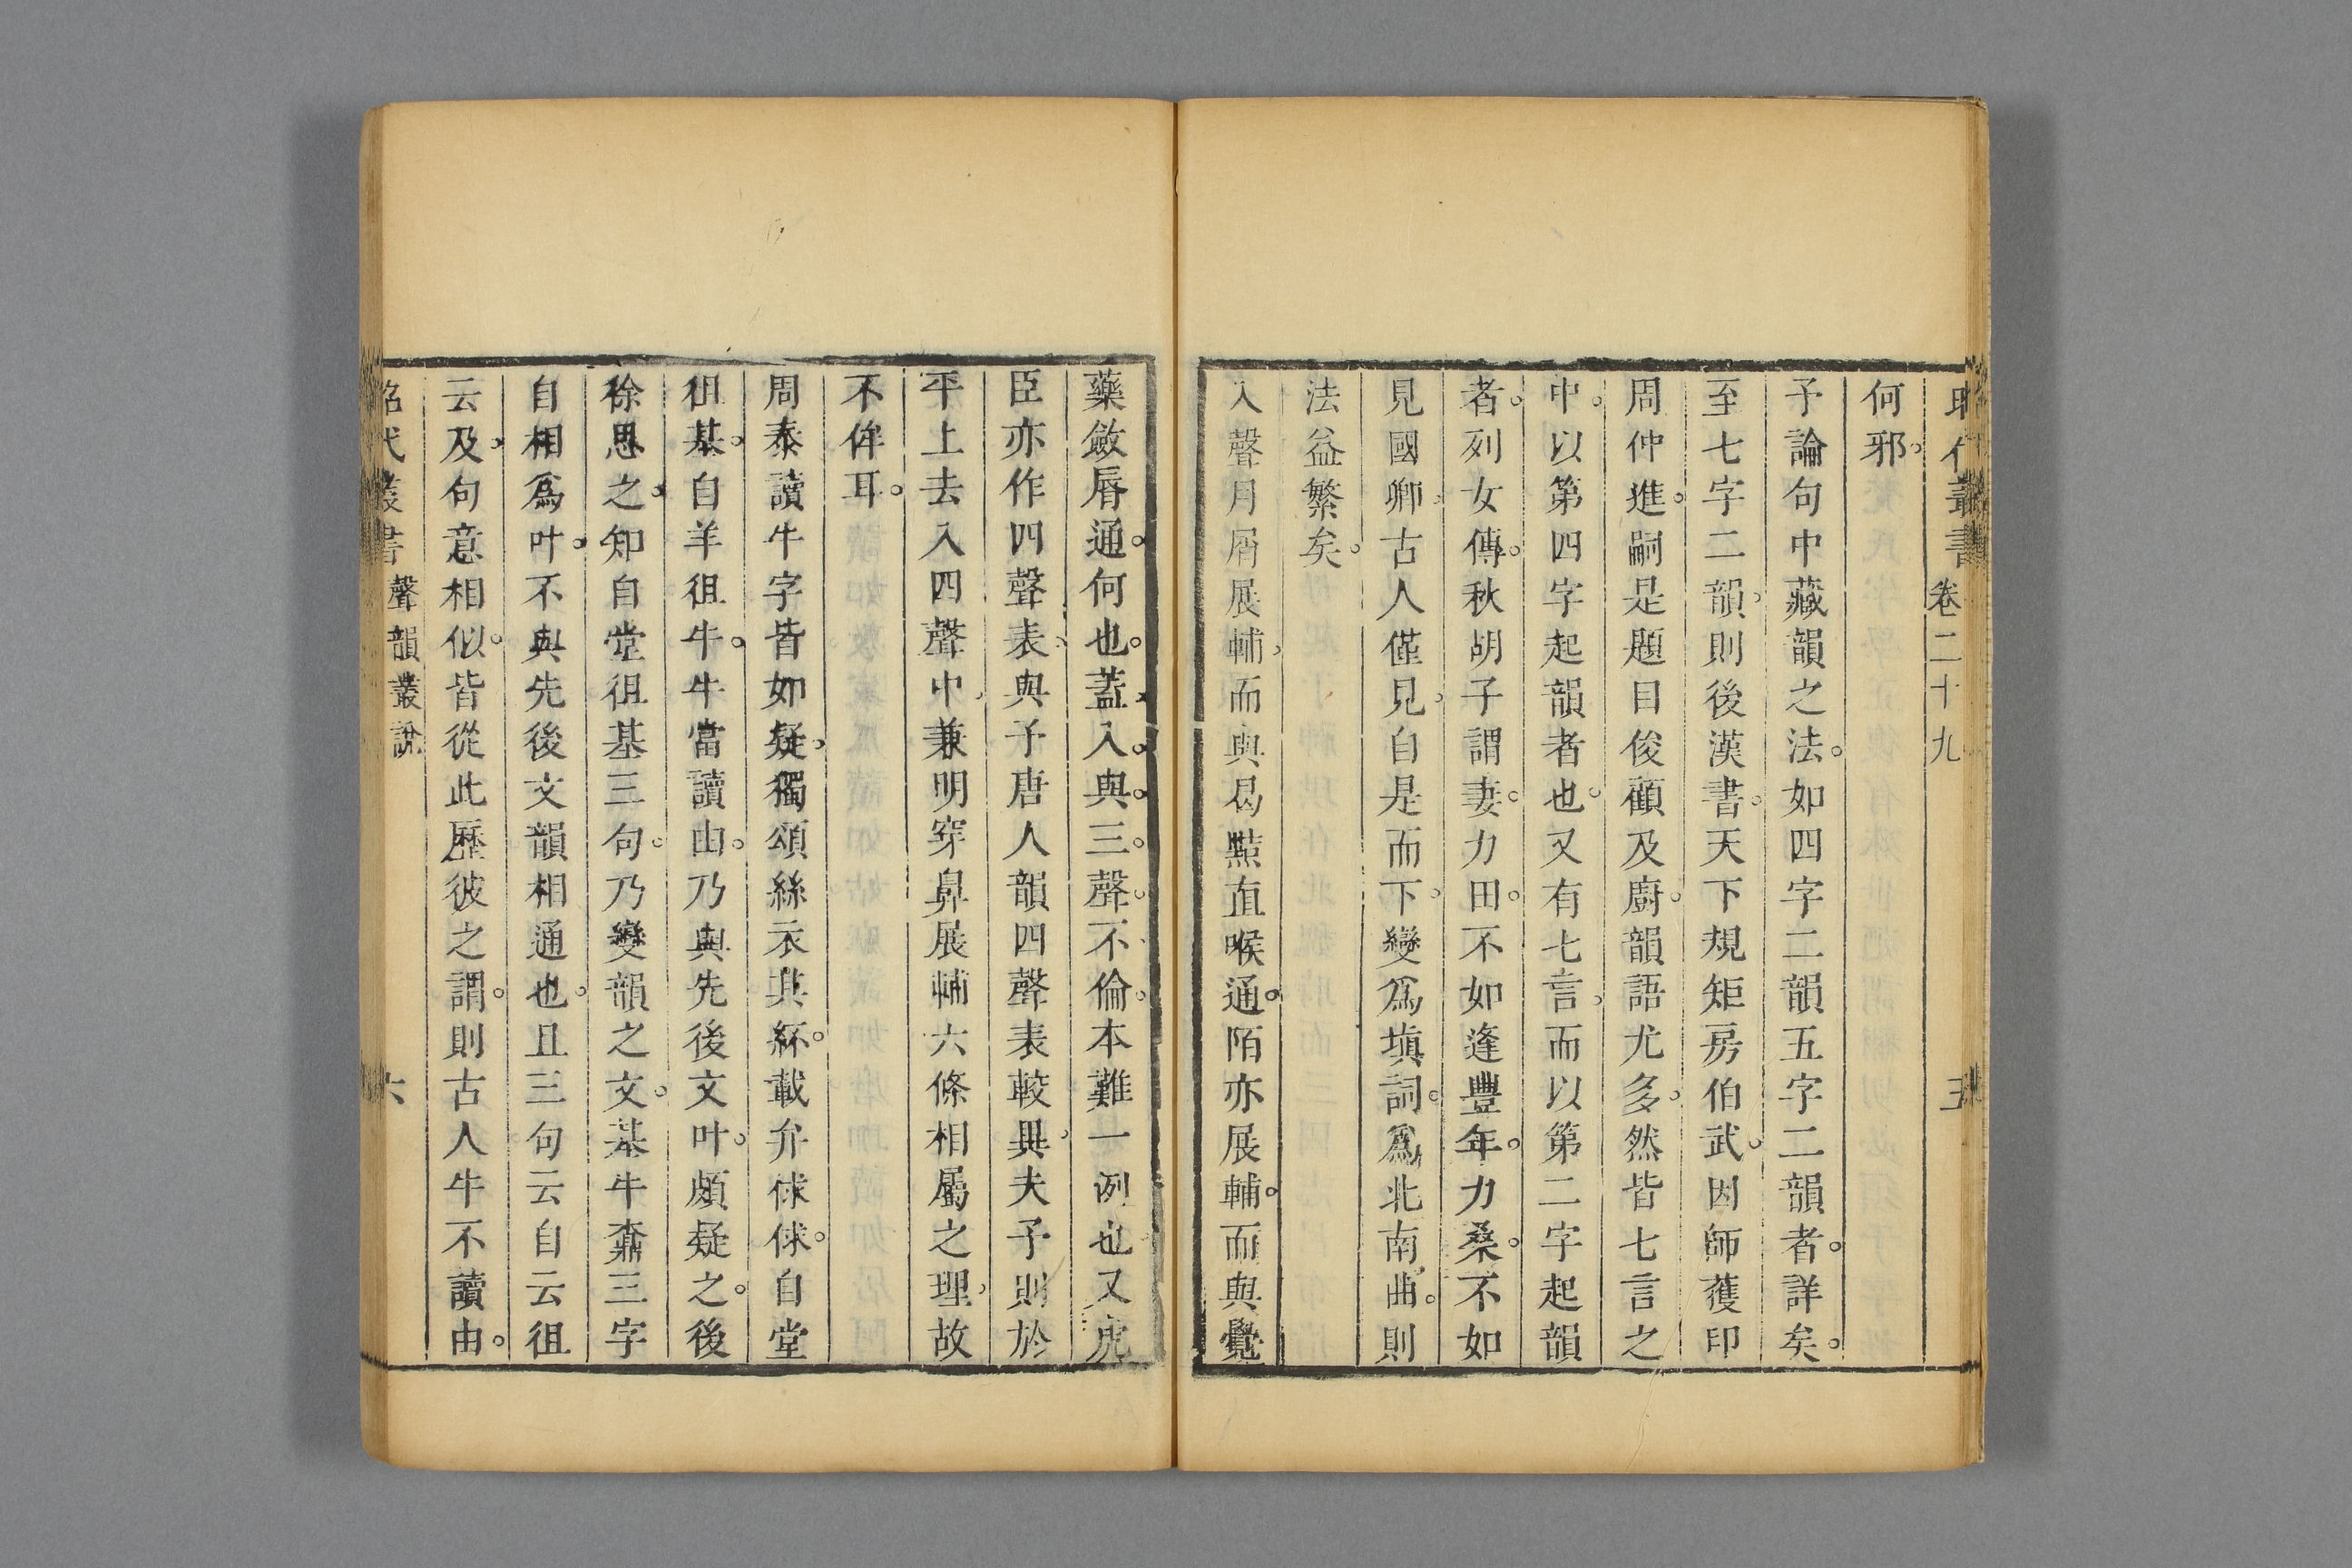 昭代叢書 卷二十九 五
何邪。
予論句中藏韻之法。如四字二韻五字二韻者。詳矣。
至七字二韻。則後漢書。天下規矩房伯武。因師獲印
周仲進。嗣是題目俊顧及廚。韻語尤多。然皆七言之
中。以第四字起韻者也。又有七言。而以第二字起韻
者。列女傳。秋胡子謂妻。力田。不如逢豐年。力桑。不如
見國卿。古人僅見。自是而下。變爲塡詞。爲北南曲。則
法益繁矣。
入聲月屑展輔。而與曷黠直喉通。陌亦展輔。而與覺
藥斂脣通。何也。蓋入與三聲。不倫。本難一例也。又虎
臣亦作四聲表。與予唐人韻四聲表較異。夫予則於
平上去入四聲中。兼明穿鼻展輔六條相屬之理。故
不侔耳。
周泰讀牛字皆如疑。獨頌絲衣其紑。載弁俅俅。自堂
徂基。自羊徂牛。牛當讀由。乃與先後文叶。頗疑之。後
徐思之。知自堂徂基三句。乃變韻之文。基牛鼒三字
自相爲叶。不與先後文韻相通也。且三句云自云徂
云及。句意相似。皆從此歷彼之謂。則古人牛不讀由。
昭代叢書 聲韻叢說 六